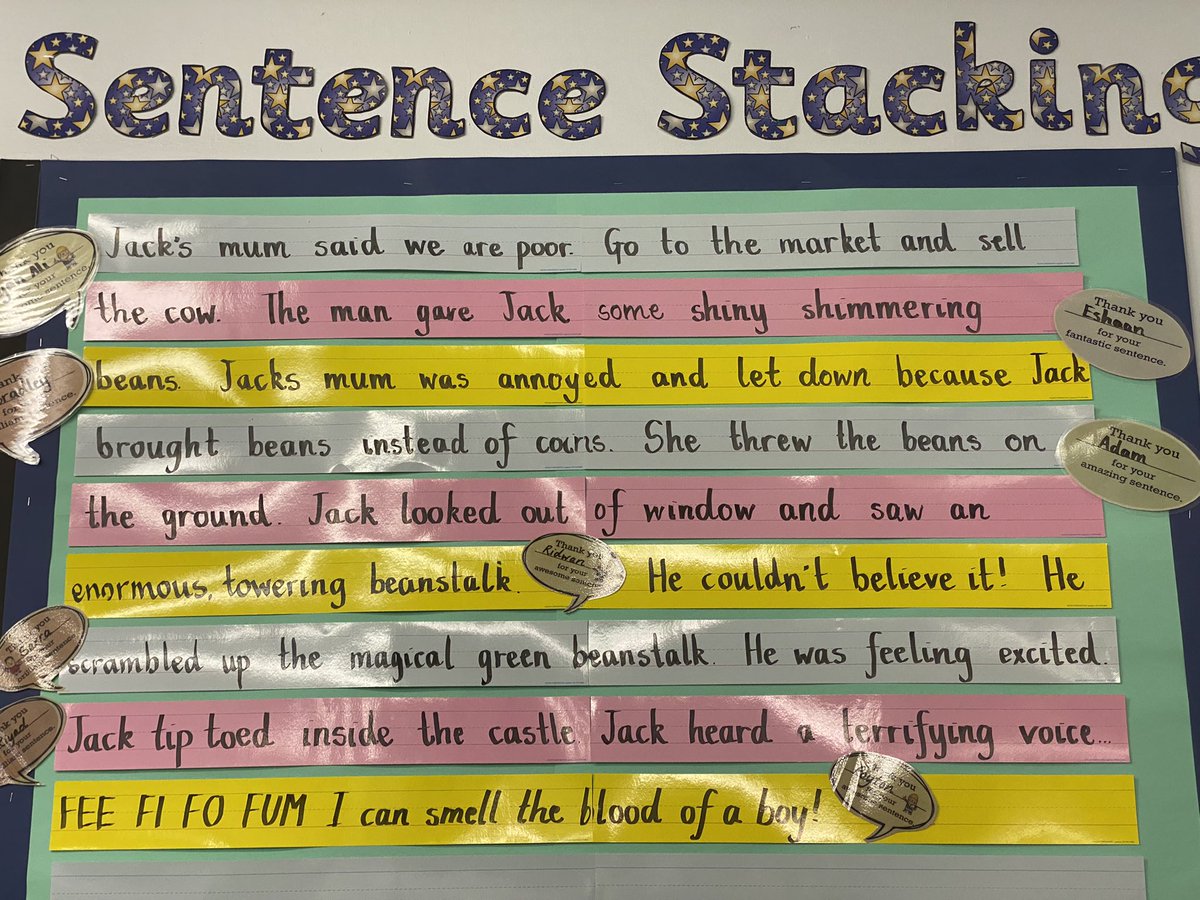 Sentence Stacking
Jack's mum said we are poor. Go to the market and sell
the cow. The man gave Jack some shiny shimmering
Thank you
Eshaan
for your
fantastic sentence.
beans. Jacks mum was annoyed and let down because Jack
brought beans instead of coins. She threw the beans on
Thank you
Adam
for your
amazing sentence.
the ground. Jack looked out of window and saw an
enormous, towering beanstalk. He couldn't believe it! He
Thank you
Ridwan
for your
awesome
scrambled up the magical green beanstalk. He was feeling excited.
Jack tip toed inside the castle. Jack heard a terrifying voice...
FEE FI FO FUM I can smell the blood of a boy!
you
your
sentence.